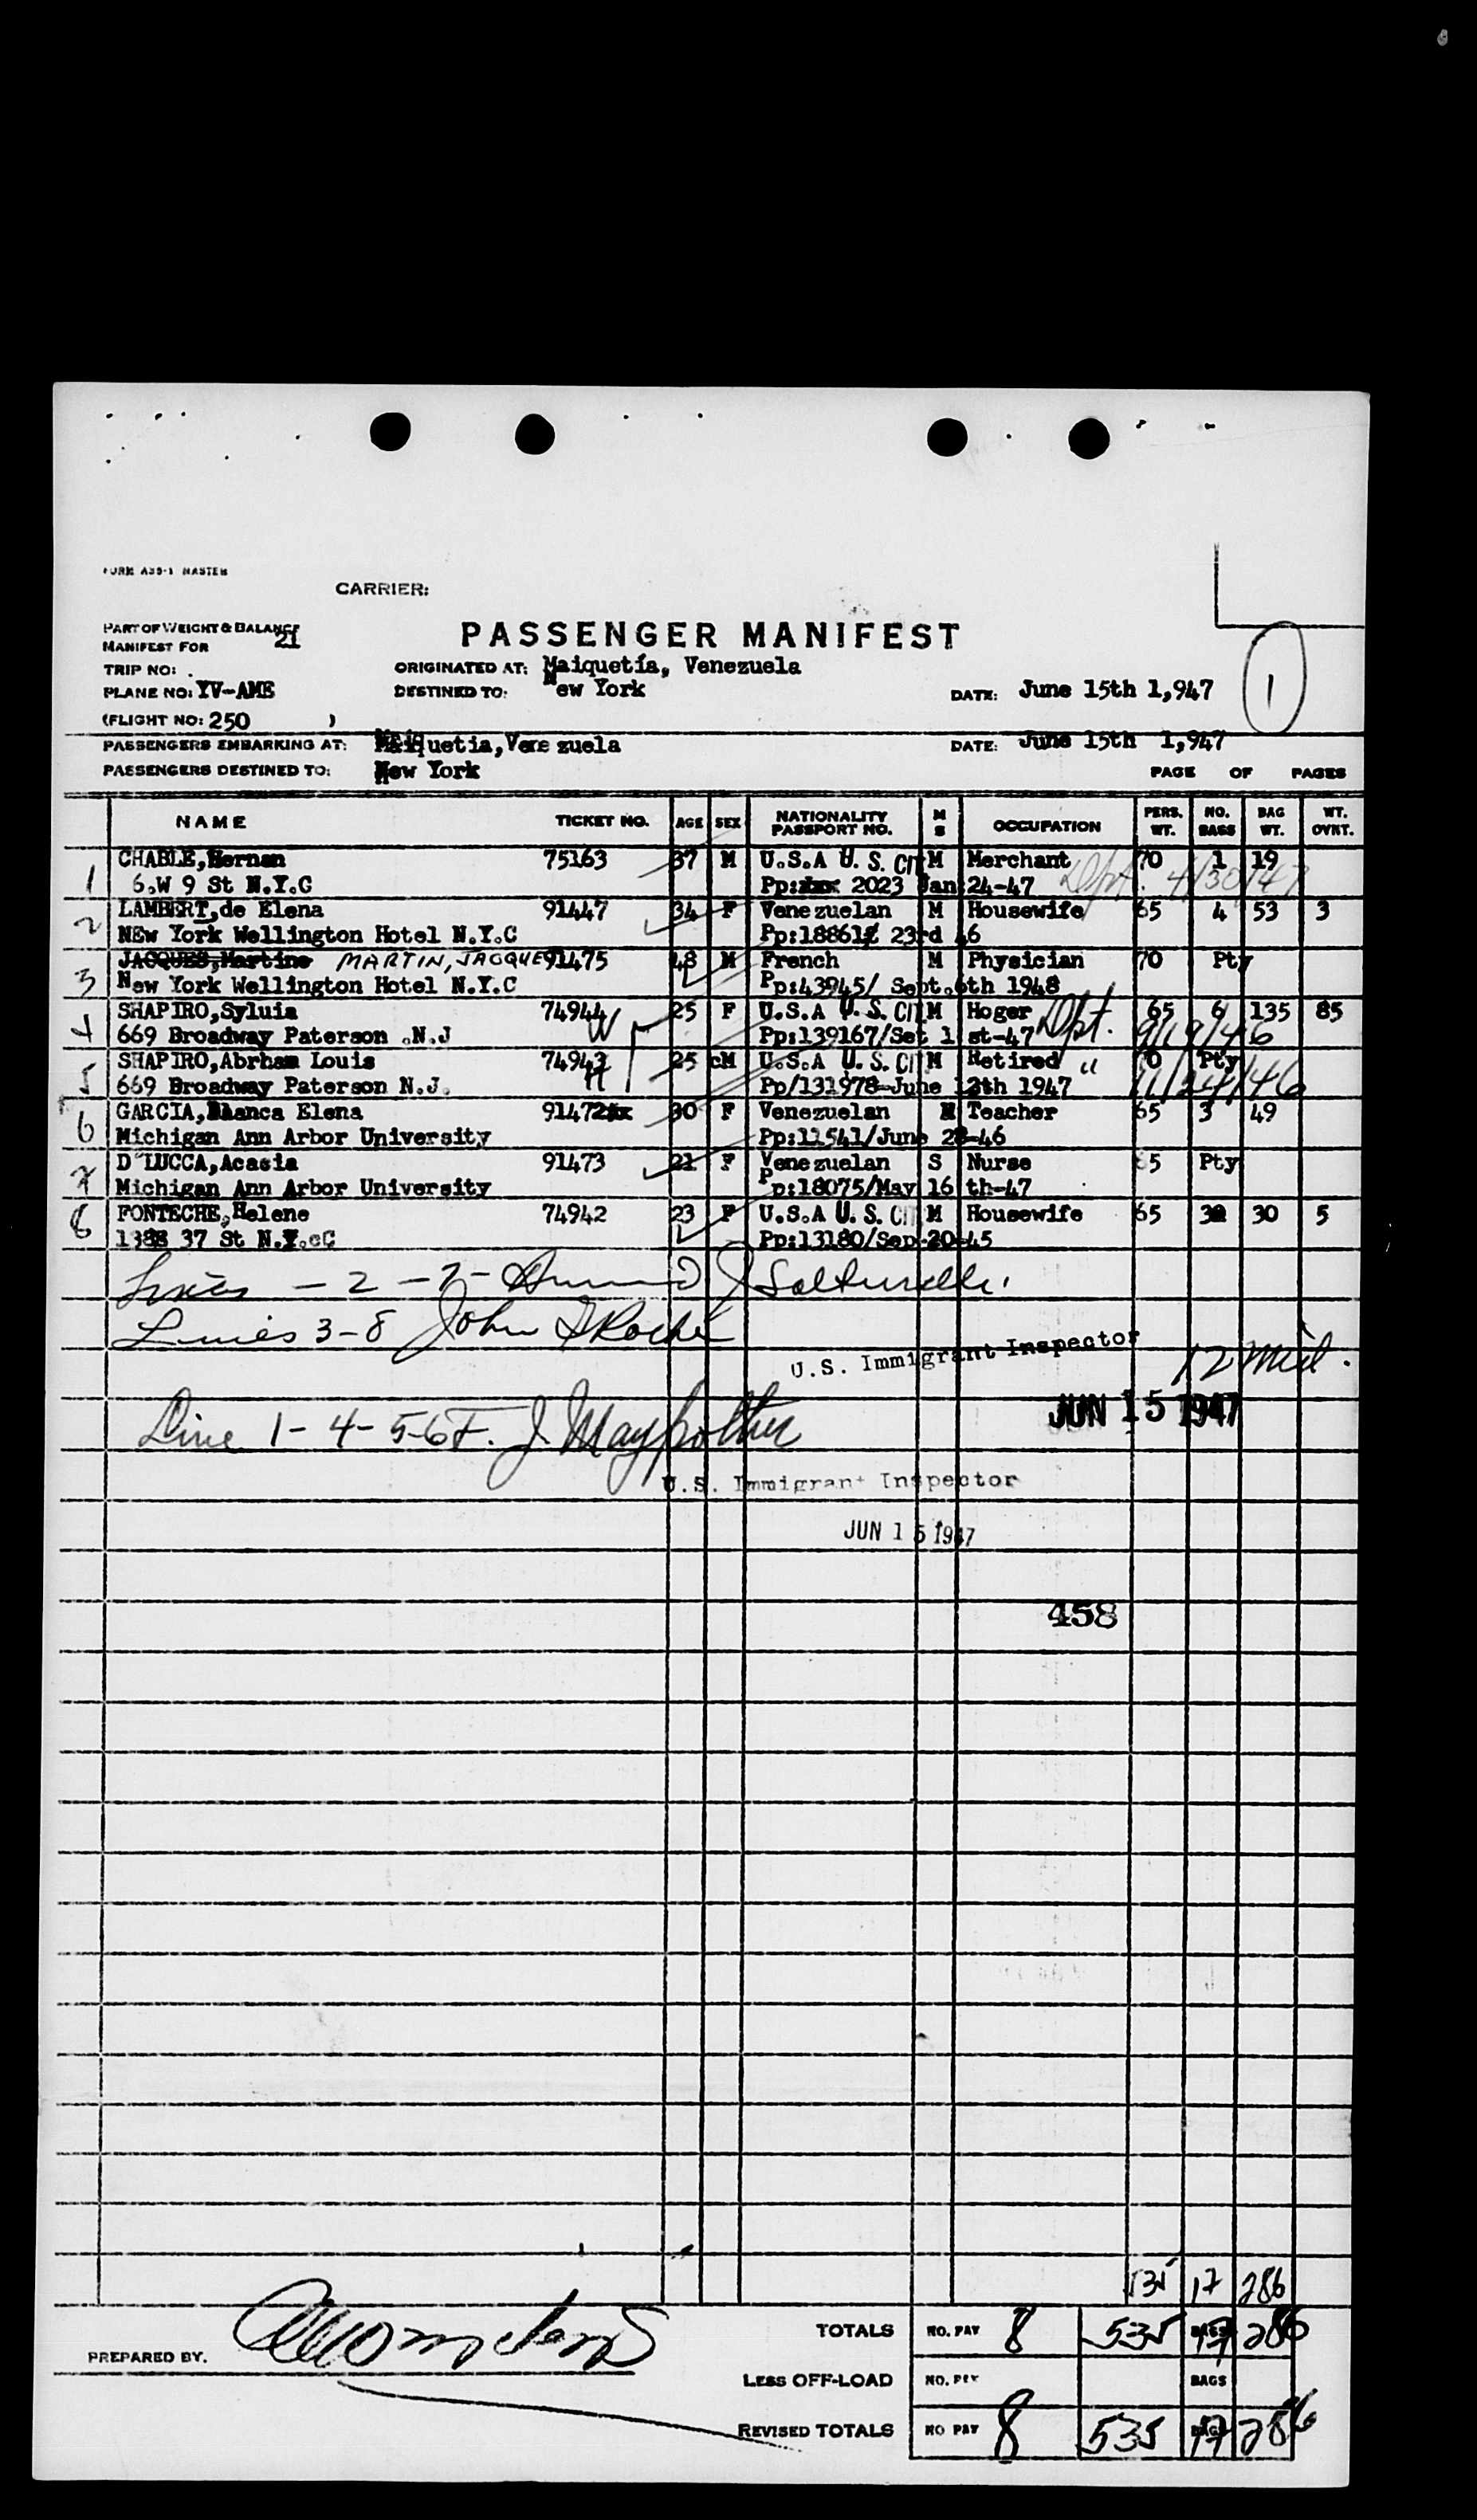 FORM ASS-1 MASTER
CARRIER:
PART OF WEIGHT & BALANCE
MANIFEST FOR 21
PASSENGER MANIFEST
TRIP NO: .
ORIGINATED AT: Maiquetía, Venezuela
PLANE NO: YV-AME
DESTINED TO: New York
DATE: June 15th 1,947
1
(FLIGHT NO: 250 )
PASSENGERS EMBARKING AT: Maiquetia, Venezuela
DATE: June 15th 1,947
PASSENGERS DESTINED TO: New York
PAGE OF PAGES
NAME TICKET NO. AGE SEX NATIONALITY PASSPORT NO. M S OCCUPATION PERS. WT. NO. BAGS BAG WT. WT. OVNT.
1 CHABLE, Hernan 75163 37 M U.S.A U. S. CIT M Merchant 70 1 19
6.W 9 St N.Y.C Pp: 2023 Jan 24-47 Dpt. 4/30/47
2 LAMBERT, de Elena 91447 34 F Venezuelan M Housewife 65 4 53 3
NEw York Wellington Hotel N.Y.C Pp:18861 23rd 46
3 JACQUES, Martine MARTIN, JACQUE 91475 48 M French M Physician 70 Pty
New York Wellington Hotel N.Y.C Pp:43945/ Sept.6th 1948
4 SHAPIRO, Syluia 74944 25 F U.S.A U. S. CIT M Hoger 65 6 135 85
669 Broadway Paterson .N.J Pp:139167/Set 1 st-47 Dpt. 9/19/46
5 SHAPIRO, Abrham Louis 74943 25 cM U.S.A U. S. CI M Retired " 70 Pty
669 Broadway Paterson N.J. Pp/131978-June 12th 1947 11/24/46
6 GARCIA, Blanca Elena 91472 30 F Venezuelan M Teacher 65 3 49
Michigan Ann Arbor University Pp:11541/June 28-46
7 D´LUCCA, Acasia 91473 21 F Venezuelan S Nurse 65 Pty
Michigan Ann Arbor University Pp:18075/May 16 th-47
8 FONTECHE, Helene 74942 23 F U.S.A U. S. CIT M Housewife 65 3 30 5
1388 37 St N.Y.C Pp:13180/Sep-20-45
Lines - 2 - 7 -
Lines 3-8 John
U.S. Immigrant Inspector
12 Mid.
JUN 15 1947
Line 1 - 4 - 5-6 F. J.
U.S. Immigrant Inspector
JUN 15 1947
458
535 17 286
PREPARED BY.
TOTALS NO. PAY 8 535 BAGS 17 286
LESS OFF-LOAD NO. PAY BAGS
REVISED TOTALS NO PAY 8 535 BAGS 17 286